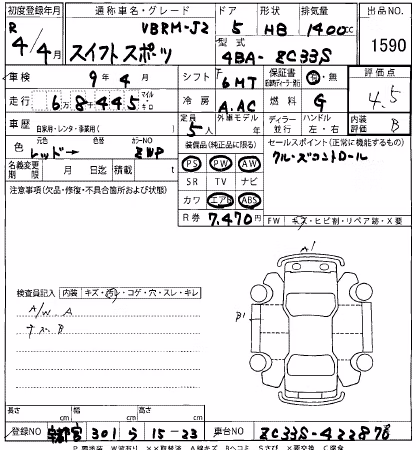 初度登録年月 通称車名・グレード VBRM-J2 ドア 形状 排気量 出品NO.
R 4/4月 スイフトスポーツ 5 HB 1400cc 1590
型式 4BA-ZC33S
車検 9年4月 シフト F 6MT 保証書 有・無 評価点
走行 6万8445 マイル キロ 冷房 A.AC 燃料 G 4.5
車歴 自家用・レンタ・事業用( ) 定員 5人 外車モデル 年 ディーラー 並行 ハンドル 左・右 内装評価 B
色 レッド→ カラーNO ZWP 装備品(純正品に限る) セールスポイント(正常に機能するもの)
名義変更期限 月 日迄 積載 t PS PW AW クルーズコントロール
注意事項(欠品・修復・不具合箇所および状態) SR TV ナビ
カワ エアB ABS
R券 7,470円 FW キズ・ヒビ割・リペア跡・X要
検査員記入 内装 キズ・汚レ・コゲ・穴・スレ・キレ A1
A/W A B1
長さ cm 幅 cm 高さ cm
登録NO 宇都宮 301 ら 15-23 車台NO ZC33S-422878